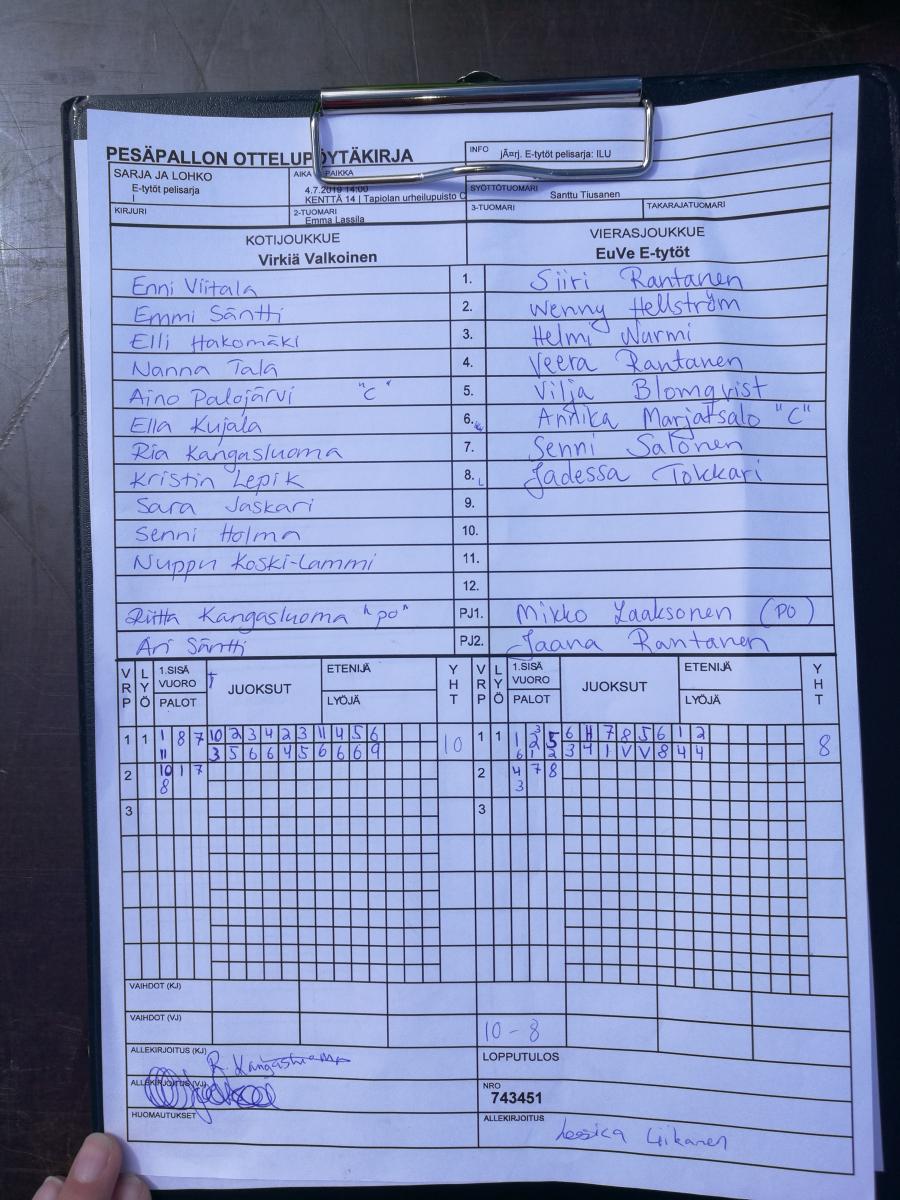 PESÄPALLON OTTELUPÖYTÄKIRJA
INFO jÃ¤rj. E-tytöt pelisarja: ILU
SARJA JA LOHKO
E-tytöt pelisarja
I
AIKA PAIKKA
4.7.2019 14:00
KENTTÄ 14 | Tapiolan urheilupuisto C
SYÖTTÖTUOMARI Santtu Tiusanen
KIRJURI
2-TUOMARI
Emma Lassila
3-TUOMARI
TAKARAJATUOMARI
KOTIJOUKKUE
Virkiä Valkoinen
VIERASJOUKKUE
EuVe E-tytöt
Enni Viitala 1. Siiri Rantanen
Emmi Säntti 2. Wenny Hellström
Elli Hakomäki 3. Helmi Nurmi
Nanna Tala 4. Veera Rantanen
Aino Palojärvi "C" 5. Vilja Blomqvist
Ella Kujala 6. Annika Marjatsalo "C"
Ria Kangasluoma 7. Senni Salonen
Kristin Lepik 8. Jadessa Tokkari
Sara Jaskari 9.
Senni Holma 10.
Nuppu Koski-Lammi 11.
12.
Riitta Kangasluoma "po" PJ1. Mikko Laaksonen (PO)
Ari Säntti PJ2. Jaana Rantanen
VRP LYÖ 1.SISÄ VUORO PALOT JUOKSUT ETENIJÄ LYÖJÄ YHT VRP LYÖ 1.SISÄ VUORO PALOT JUOKSUT ETENIJÄ LYÖJÄ YHT
1 1 1 8 7 10 2 3 4 2 3 11 4 5 6 10 1 1 6 H 7 8 5 6 1 2 8
11 3 5 6 6 4 5 6 6 6 9 3 4 1 V V 8 4 4
2 10 1 7 2 4 7 8
8 3
3 3
VAIHDOT (KJ)
VAIHDOT (VJ)
10-8
ALLEKIRJOITUS (KJ) R. Kangasluoma
LOPPUTULOS
ALLEKIRJOITUS (VJ)
NRO
743451
HUOMAUTUKSET
ALLEKIRJOITUS
Jessica Liikanen